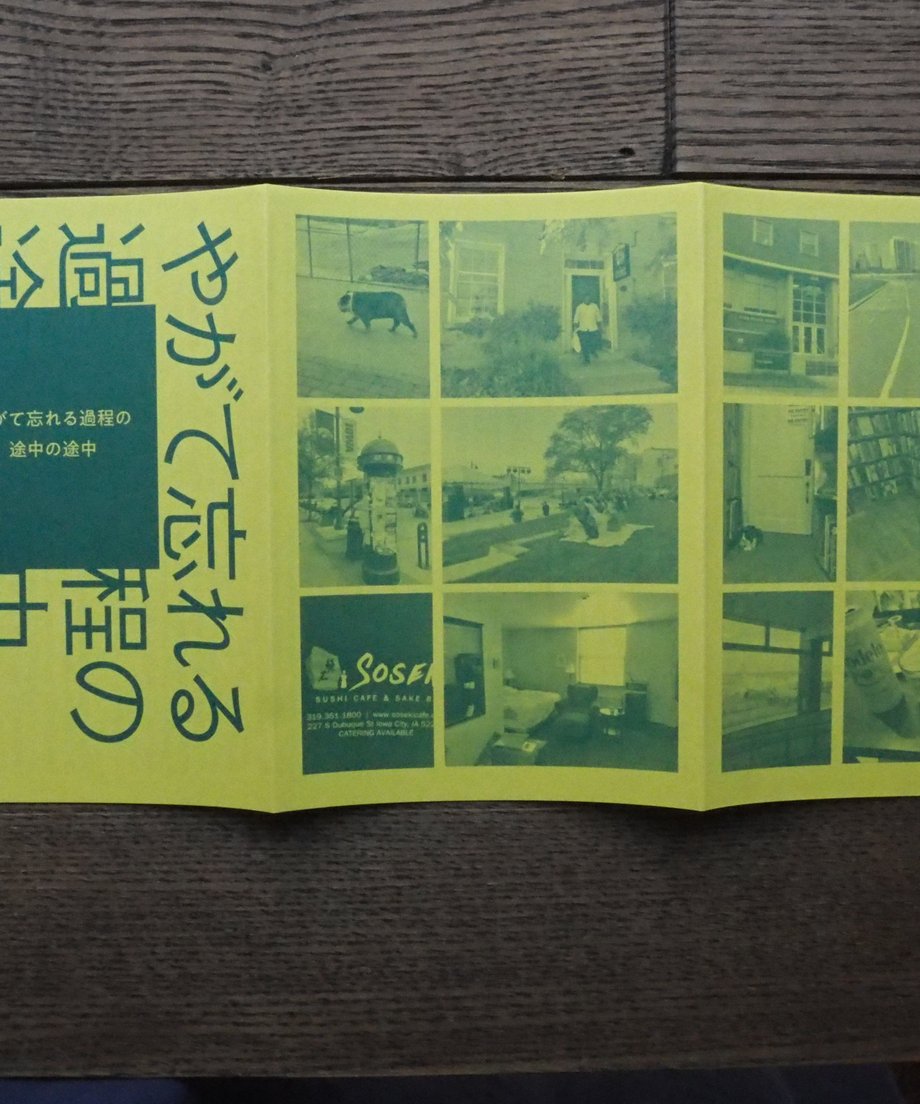 やがて忘れる
過程の
途中
がて忘れる過程の
途中の途中
SOSEKI
SUSHI CAFE & SAKE B
319.351.1800 | www.sosekicafe.c
227 S Dubuque St Iowa City, IA 522
CATERING AVAILABLE